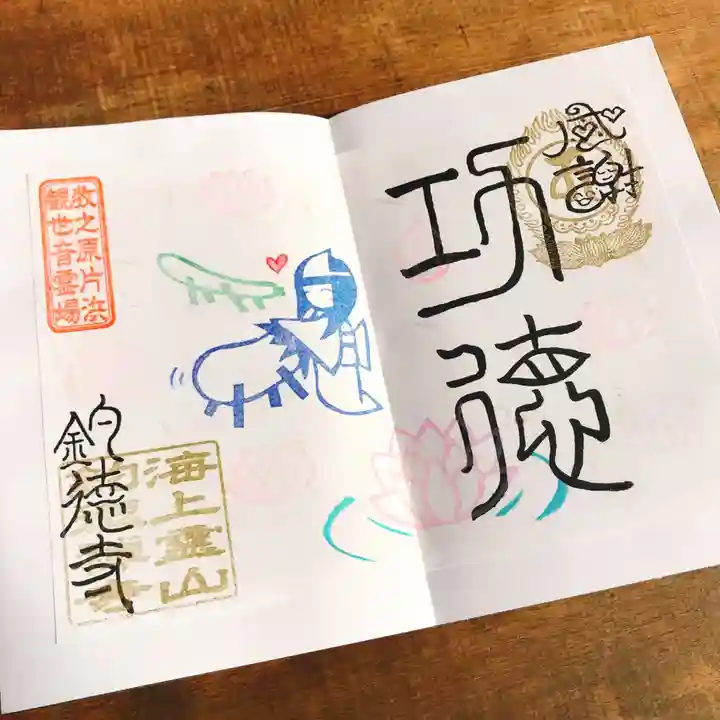 感謝
功徳
牧之原片浜
観世音霊場
釣徳寺
海上霊山